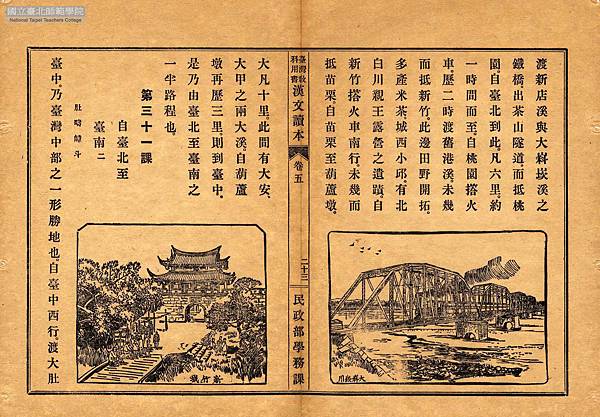 國立臺北師範學院
National Taipei Teachers College
渡新店溪與大嵙崁溪之
鐵橋。出茶山隧道。而抵桃
園。自臺北到此。凡六里。約
一時間而至。自桃園搭火
車。歷二時渡舊港溪。未幾
而抵新竹。此邊田野開拓。
多產米茶。城西小邱。有北
白川親王露營之遺蹟。自
新竹搭火車南行。未幾而
抵苗栗。自苗栗至葫蘆墩。
大嵙崁川
臺灣教科用書
漢文讀本
卷五
二十三
民政部學務課
大凡十里。此間有大安。
大甲之兩大溪。自葫蘆
墩再歷三里。則到臺中。
是乃由臺北至臺南之
一半路程也。
第三十一課
自臺北至
臺南二
肚 斗
臺中乃臺灣中部之一形勝地也。自臺中西行。渡大肚
新竹城